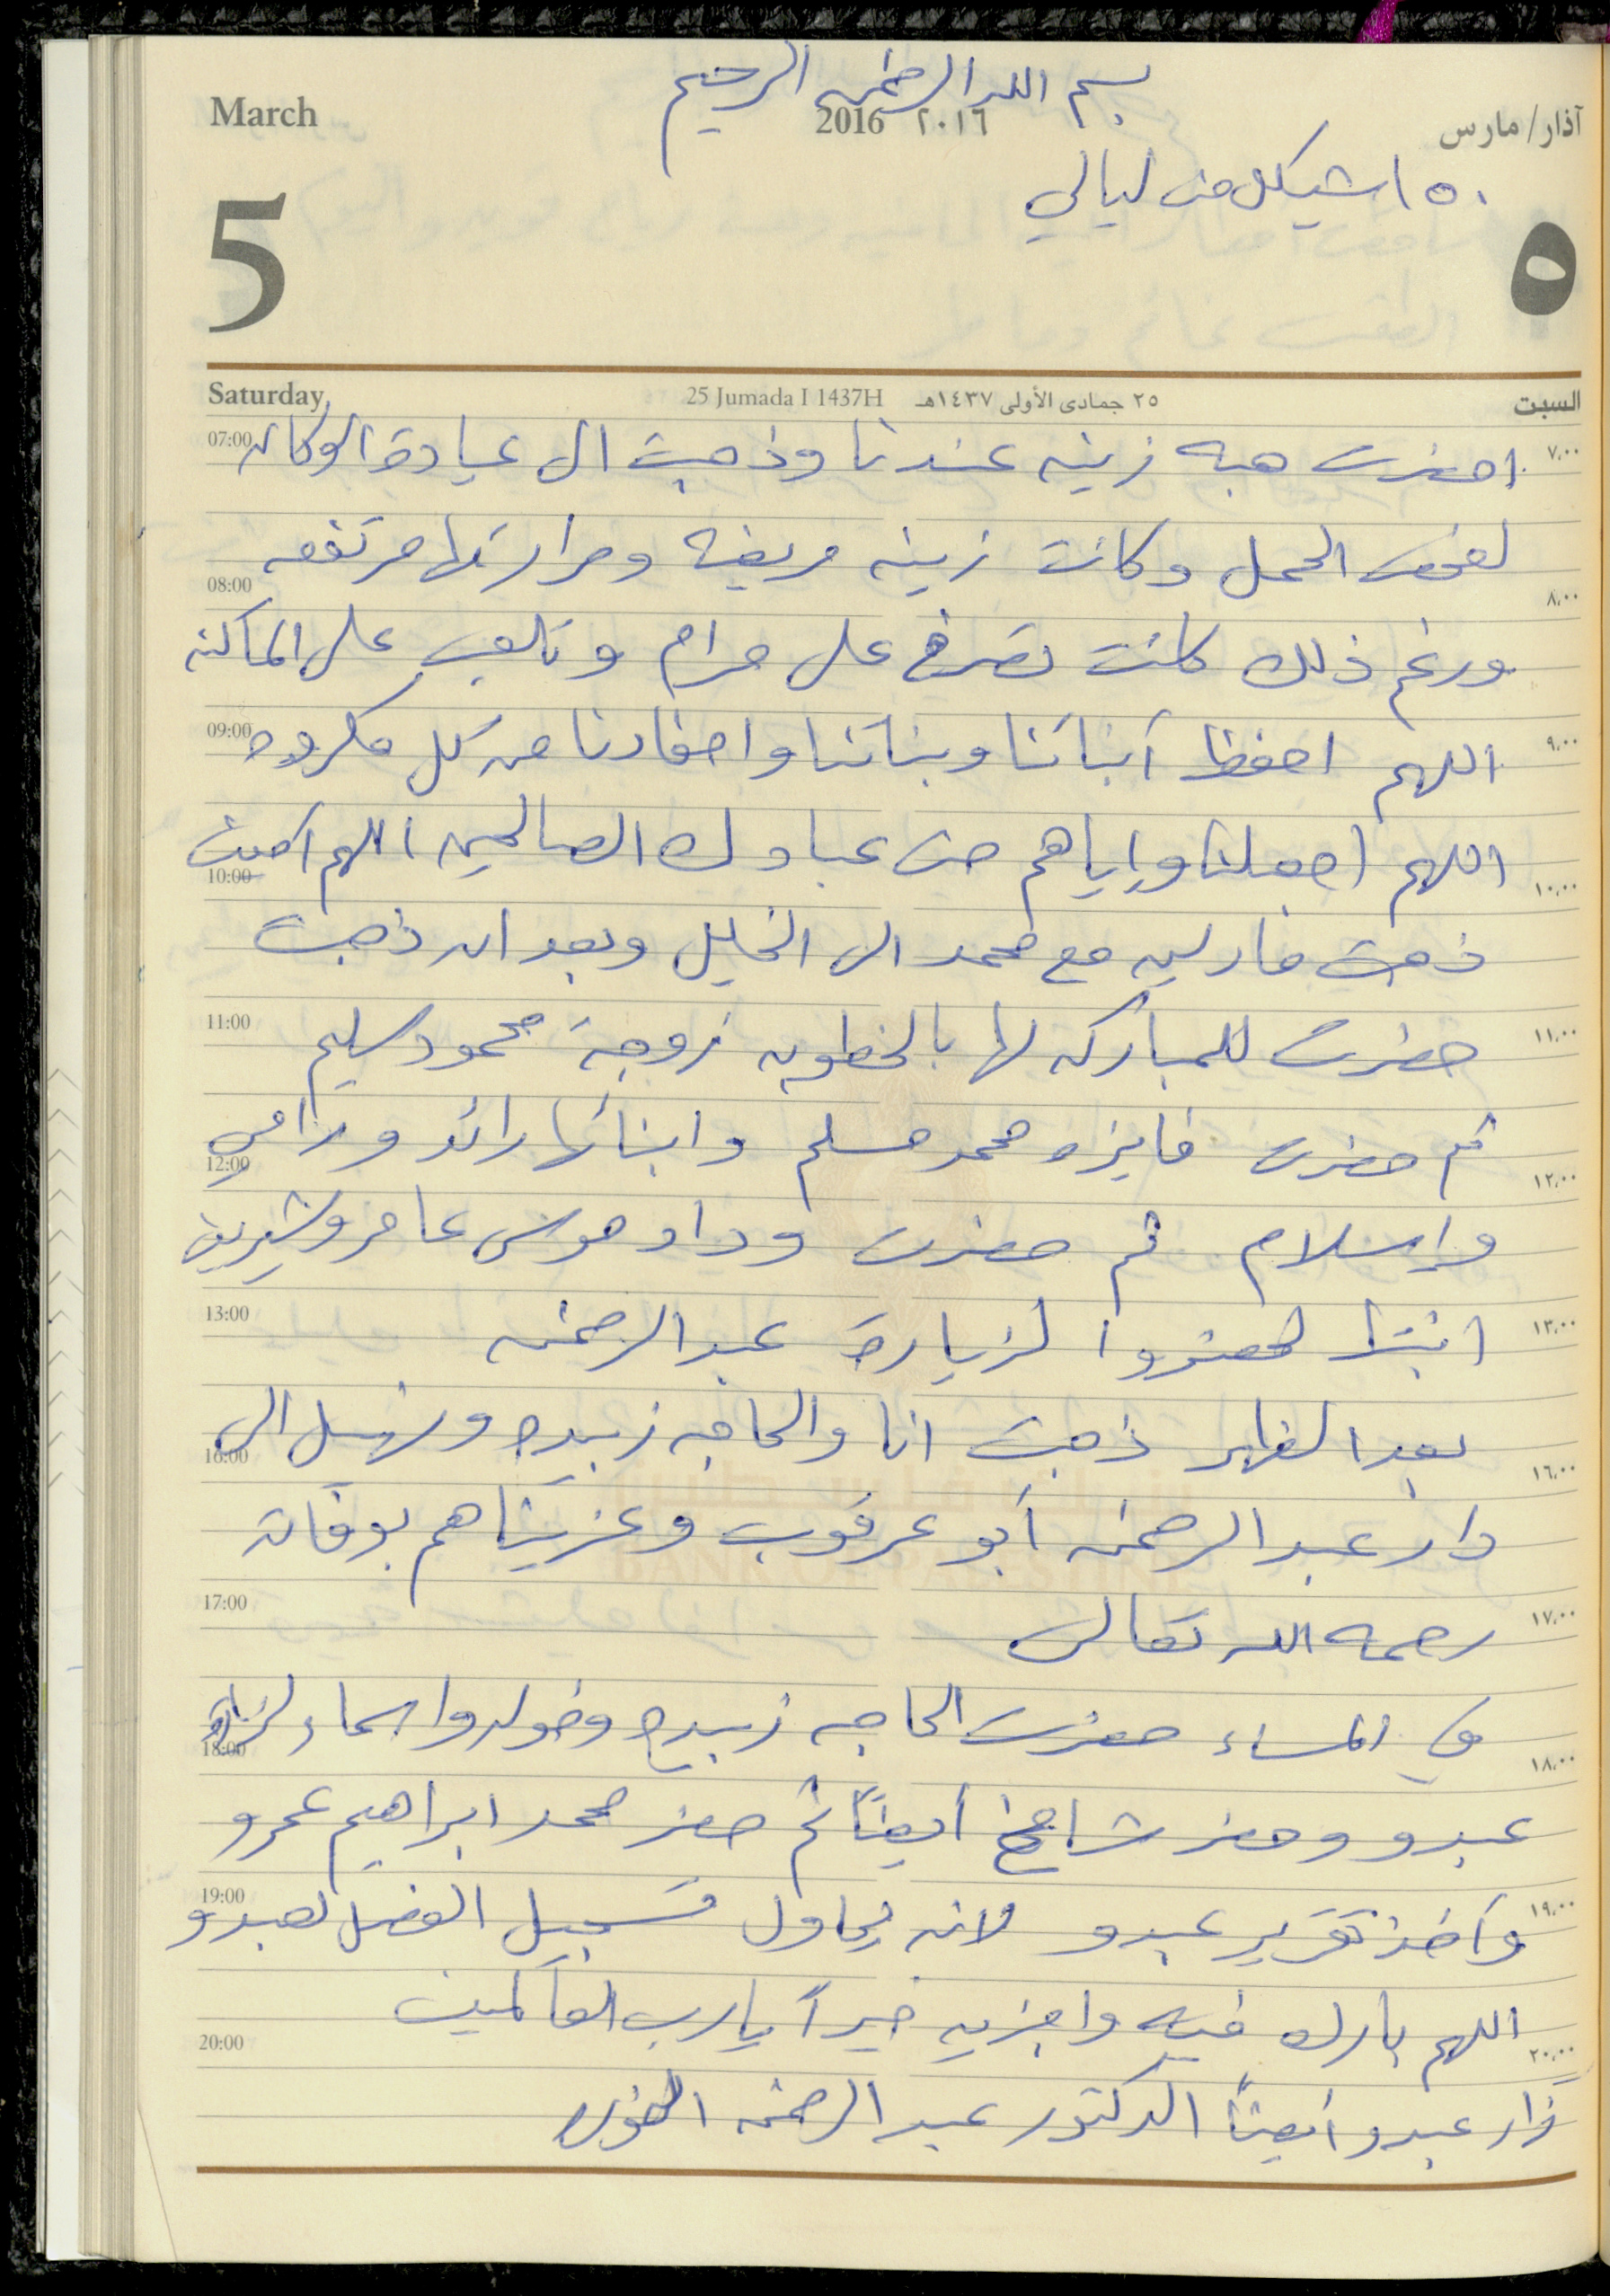 بسم الله الرحمن الرحيم
March 2016 ٢٠١٦ آذار/مارس
١٥٠ شيكل من ليالي
5 ٥
Saturday 25 Jumada I 1437H ٢٥ جمادى الأولى ١٤٣٧هـ السبت
07:00 ٧،٠٠
احضرت هبه زينه عندنا وذهبت الى عيادة الوكاله
لفحص الحمل وكانت زينه مريضه وحرارتها مرتفعه
08:00 ٨،٠٠
ورغم ذلك كانت تضرخ على مرام وتلعب على الماكنه
09:00 ٩،٠٠
اللهم احفظ أبنائنا وبناتنا واحفادنا من كل مكروه
اللهم اجعلنا وإياهم من عبادك الصالحين اللهم امين
10:00 ١٠،٠٠
ذهبت مارلين مع محمد الى الخليل وبعد ان ذهبت
11:00 ١١،٠٠
حضرت للمباركه لها بالخطوبه زوجة محمود سليم
ثم حضرت فايزه محمد مسلم وابنائها رائد ورامي
12:00 ١٢،٠٠
وإسلام ثم حضرت وداد موسى عامر وشيرين
13:00 ١٣،٠٠
ابنتها حضروا لزيارة عبد الرحمن
بعد الظهر ذهبت انا والحاجه زبيده ونهيل الى
16:00 ١٦،٠٠
دار عبد الرحمن أبو عرقوب وعزيناهم بوفاته
17:00 ١٧،٠٠
رحمه الله تعالى
في المساء حضرت الحاجه زبيده وخوله واسماء لزيارة
18:00 ١٨،٠٠
عبدو وحضر شامخ أيضاً ثم حضر محمد ابراهيم عمرو
19:00 ١٩،٠٠
وأخذ تقرير عبدو لانه يحاول تسجيل الفصل لعبدو
اللهم بارك فيه واجزيه خيراً يا رب العالمين
20:00 ٢٠،٠٠
زار عبدو أيضاً الدكتور عبد الرحمن
بنك فلسطين
BANK OF PALESTINE